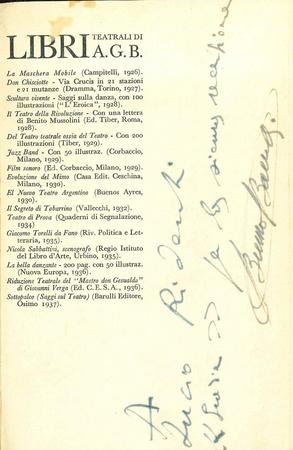 LIBRI TEATRALI DI
A.G.B.
La Maschera Mobile (Campitelli, 1926).
Don Chisciotte - Via Crucis in 21 stazioni
e 21 mutanze (Dramma, Torino, 1927).
Scultura vivente - Saggi sulla danza, con 100
illustrazioni ("L'Eroica", 1928).
Il Teatro della Rivoluzione - Con una lettera
di Benito Mussolini (Ed. Tiber, Roma,
1928).
Del Teatro teatrale ossia del Teatro - Con 200
illustrazioni (Tiber, 1929).
Jazz Band - Con 50 illustraz. (Corbaccio,
Milano, 1929).
Film sonoro (Ed. Corbaccio, Milano, 1929).
Evoluzione del Mimo (Casa Edit. Ceschina,
Milano, 1930).
El Nuovo Teatro Argentino (Buenos Ayres,
1930).
Il Segreto di Tabarrino (Vallecchi, 1932).
Teatro di Prova (Quaderni di Segnalazione,
1934)
Giacomo Torelli da Fano (Riv. Politica e Let-
teraria, 1935).
Nicola Sabbattini, scenografo (Regio Istituto
del Libro d'Arte, Urbino, 1935).
La bella danzante - 200 pag. con 50 illustraz.
(Nuova Europa, 1936).
Riduzione Teatrale del "Mastro don Gesualdo"
di Giovanni Verga (Ed. C.E.S.A., 1936).
Sottopalco (Saggi sul Teatro) (Barulli Editore,
Osimo 1937).
A
Lucio Ridenti